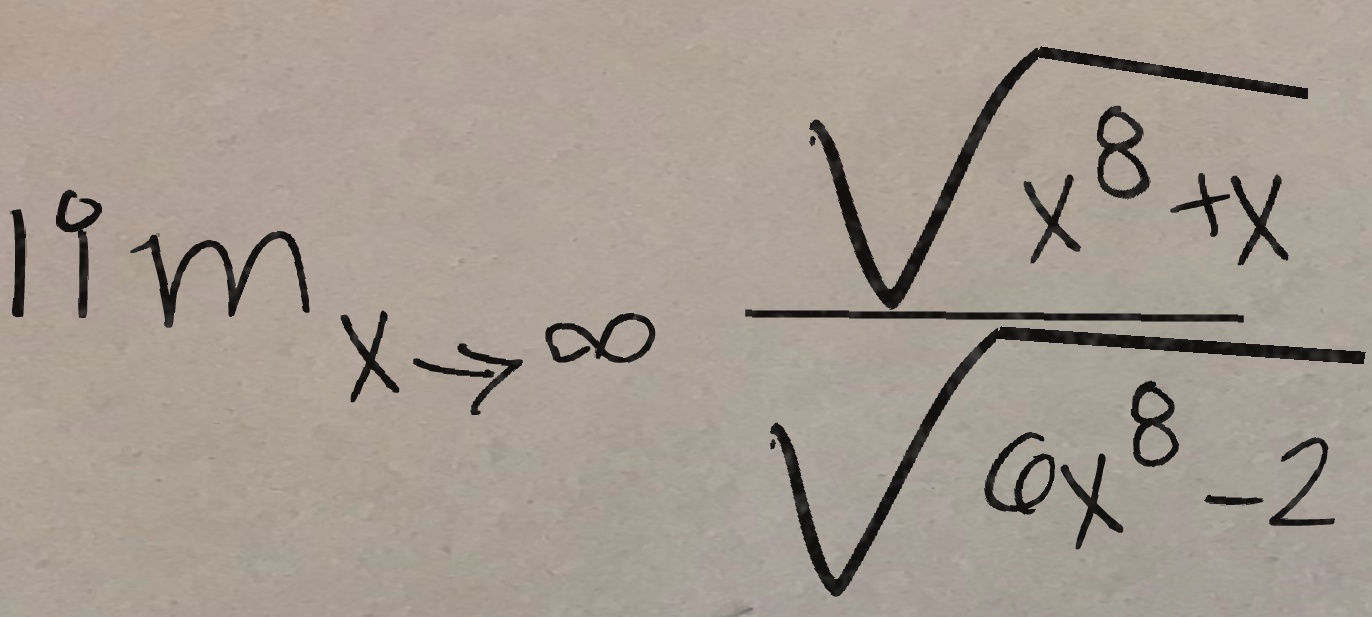 \lim_{x \to \infty} \frac{\sqrt{x^8+x}}{\sqrt{6x^8-2}}